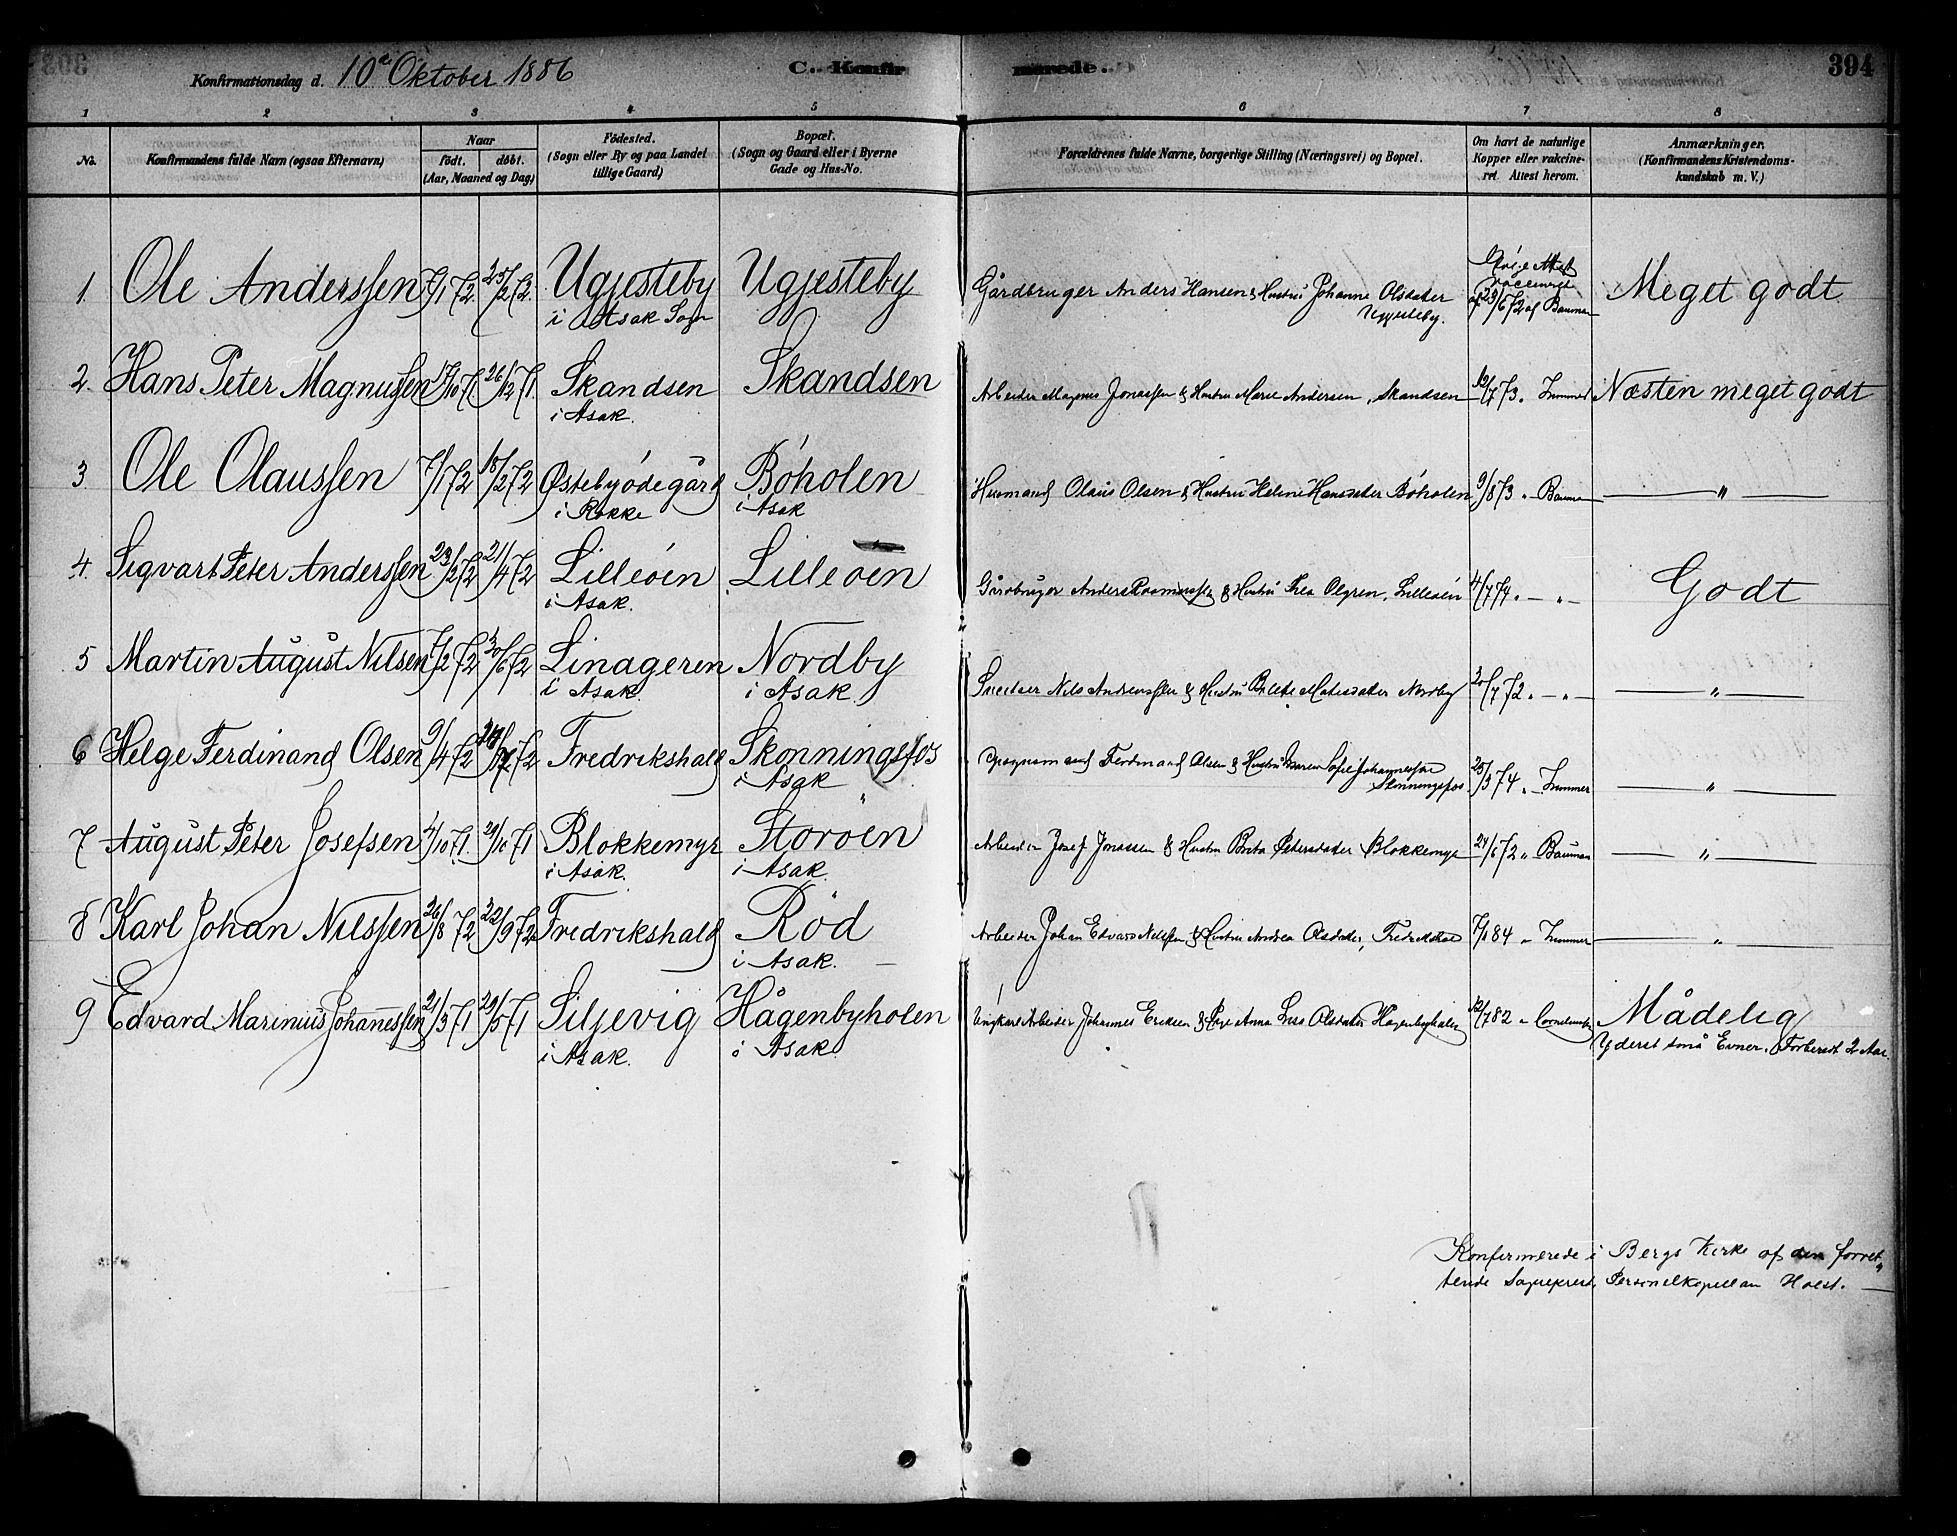 Konfirmationsdag d. 10de Oktober 1886 C. Konfirmerede. 394
1 2 3 4 5 6 7 8
No. Konfirmandens fulde Navn (ogsaa Efternavn) Naar født. døbt. (Aar, Maaned og Dag) Fødested. (Sogn eller By og paa Landet tillige Gaard) Bopæl. (Sogn og Gaard eller i Byerne Gade og Hus-No. Forældrenes fulde Navne, borgerlige Stilling (Næringsvei) og Bopæl. Om havt de naturlige Kopper eller vakcineret. Attest herom. Anmærkninger. (Konfirmandens Kristendomskundskab m. V.)
1. Ole Anderssen 7/1 72 25/2 72 Ugjesteby Ugjesteby Gårdbruger Anders Hansen & Hustru Johanne Olsdatter 23/6 72 af Bauman Meget godt
i Asak Sogn Ugjesteby.
2. Hans Peter Magnussen 17/10 71. 26/12 71. Skandsen Skandsen Arbeider Magnus Jonassen & Hustru Marie Andersen, Skandsen 12/7 73 " Zimmer Næsten meget godt
i Asak.
3 Ole Olaussen 7/1 72 18/2 72 Østebyødegård Bøholen Husmand Olaus Olsen & Hustru Helene Hansdatter Bøholen 9/8 73 " Bauman — " —
i Rokke i Asak
4. Sigvart Peter Anderssen 23/2 72 21/4 72 Lilleøen Lilleøen Gårdbruger Anders Rasmussen & Hustru Thea Olgren, Lilleøen 4/7 74 " — " — Godt
i Asak.
5 Martin August Nilsen 7/2 72 30/6 72 Linageren Nordby Snedker Nils Andreassen & Hustru Bolette Matisdatter Nordby 20/7 72 " — " — — " —
i Asak i Asak
6 Helge Ferdinand Olsen 9/4 72 Fredrikshald Skonningsfos Ferdinand Olsen & Hustru Maren Sofie Johannessen 25/3 74 " Zimmer — " —
i Asak Skonningsfos.
7 August Peter Josefsen 4/10 71. 29/10 71 Blokkemyr Storøen Arbeider Josef Jonassen & Hustru Berta Petersdatter Blokkemyr 24/6 72 " Bauman — " —
i Asak. i Asak.
8 Karl Johan Nilssen 26/8 72 22/9 72 Fredrikshald Rød Arbeider Johan Edvard Nilssen & Hustru Andrea Olsdatter, Fredrikshald 7/1 84 " Zimmer — " —
i Asak. —
9 Edvard Marinius Johanessen 21/3 71 29/5 71 Siljevig Hågenbyholen Ungkarl Arbeider Johannes Eriksen & Pige Anna Lise Olsdatter Hagenbyholen 12/7 82 " Mådelig
i Asak. i Asak Yderst små Evner. Forberedt 2 Aar.
Konfirmerede i Bergs Kirke af den forret-
tende Sogneprest, Personelkapellan Holst. —